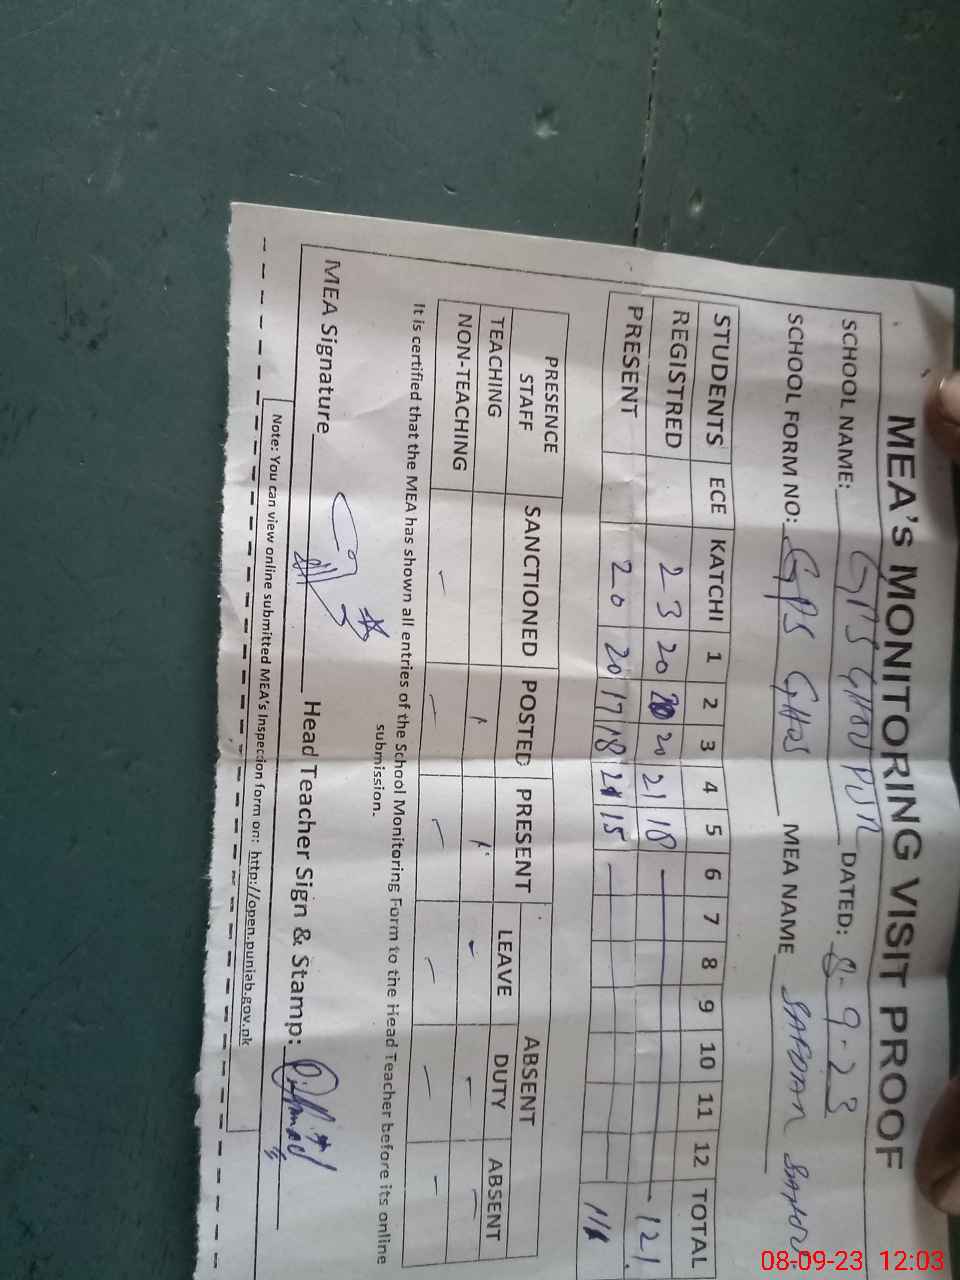 MEA's MONITORING VISIT PROOF
SCHOOL NAME: GPS GHOUPUR DATED: 8-9-23
SCHOOL FORM NO: GPS GHOS MEA NAME
STUDENTS ECE KATCHI 1 2 3 4 5 6 7 8 9 10 11 12 TOTAL
REGISTRED 23 20 20 20 21 18 — 121
PRESENT 20 20 17 18 21 15 —
PRESENCE ABSENT
STAFF SANCTIONED POSTED PRESENT LEAVE DUTY ABSENT
TEACHING
NON-TEACHING — — — — — —
It is certified that the MEA has shown all entries of the School Monitoring Form to the Head Teacher before its online
submission.
MEA Signature Head Teacher Sign & Stamp:
Note: You can view online submitted MEA's Inspection form on: http://open.punjab.gov.pk
08-09-23 12:03